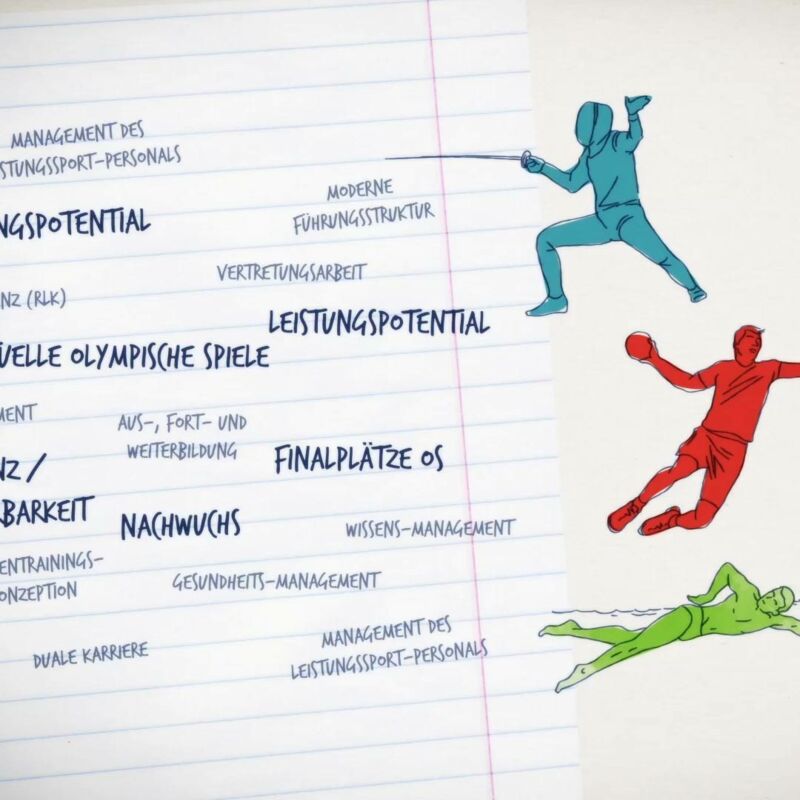 MANAGEMENT DES
STUNGSSPORT-PERSONALS
MODERNE
FÜHRUNGSSTRUKTUR
NGSPOTENTIAL
VERTRETUNGSARBEIT
NZ (RLK)
LEISTUNGSPOTENTIAL
UELLE OLYMPISCHE SPIELE
MENT
AUS-, FORT- UND
WEITERBILDUNG
FINALPLÄTZE OS
NZ /
BARKEIT
NACHWUCHS
WISSENS-MANAGEMENT
ENTRAININGS-
ONZEPTION
GESUNDHEITS-MANAGEMENT
DUALE KARRIERE
MANAGEMENT DES
LEISTUNGSSPORT-PERSONALS